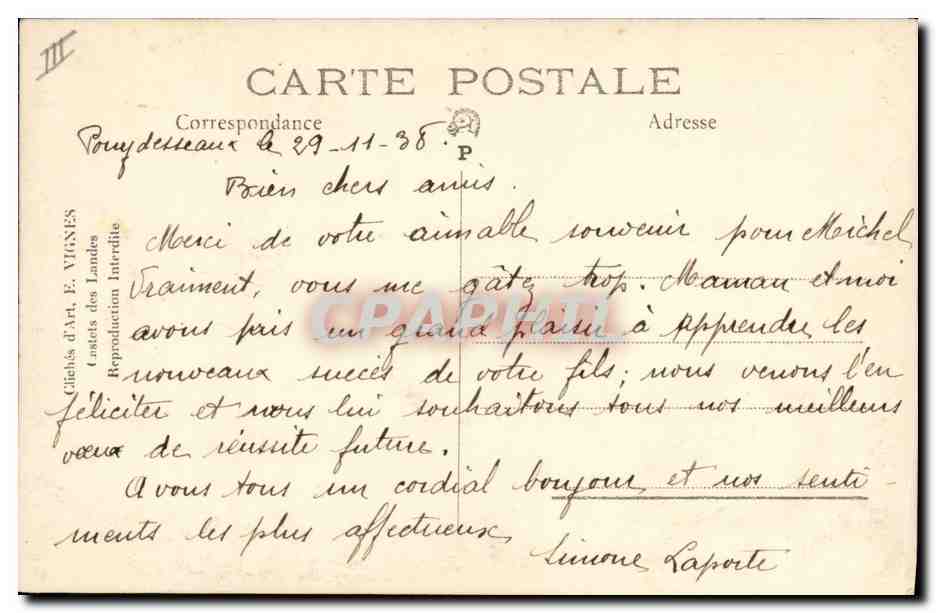 III
CARTE POSTALE
Correspondance
Adresse
P
Clichés d'Art, E. VIGNES
Castets des Landes
Reproduction Interdite
Pouydesseaux le 29-11-38.
Bien chers amis.
Merci de votre aimable souvenir pour Michel
Vraiment, vous me gâtez trop. Maman et moi
avons pris un grand plaisir à apprendre les
nouveaux succès de votre fils; nous venons l'en
féliciter et nous lui souhaitons tous nos meilleurs
voeux de réussite future.
A vous tous un cordial bonjour et nos senti-
ments les plus affectueux
Simone Laporte
CPAPHIL